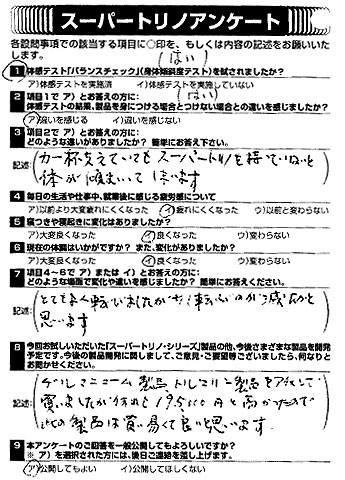 スーパートリノアンケート
各設問事項での該当する項目に○印を、もしくは内容の記述をお願いいたします。
(はい)
1 体感テスト「バランスチェック」(身体傾斜度テスト)を試されましたか?
ア)体感テストを実施済 イ)体感テストを実施していない
(はい)
2 項目1で ア)とお答えの方に:
体感テストの結果、製品を身につける場合とつけない場合との違いを感じましたか?
ア)違いを感じる イ)違いを感じない
3 項目2で ア)とお答えの方に:
どのような違いがありましたか? 簡単にお答え下さい。
記述:(力一杯支えていてもスーパートリノを持っていないと
体が傾まいてしまいます
4 毎日の生活や仕事中、就業後に感じる疲労感について
ア)以前より大変疲れにくくなった イ)疲れにくくなった ウ)以前と変わらない
5 寝つきや寝起きに変化はありましたか?
ア)大変良くなった イ)良くなった ウ)変わらない
6 現在の体調はいかがですか? また、変化がありましたか?
ア)大変良くなった イ)良くなった ウ)変わらない
7 項目4~6で ア) または イ)とお答えの方に:
どのような場面で変化や違いを感じましたか? 簡単にお答えください。
記述: とてもよく転びましたが
思います
8 今回お試しいただいた「スーパートリノ・シリーズ」製品の他、今後さまざまな製品を開発予定です。今後の製品開発に関しまして、ご意見・ご要望等ございましたら、何なりとお聞かせください。
記述: ゲルマニューム製品 トルマリン製品を
買いましたが 19500円と高かったので
此の製品は買い易くて良いと思います。
9 本アンケートのご回答を一般公開してもよろしいですか?
※ ア)を選択された方には、後日ご連絡を差し上げます。
ア)公開してもよい イ)公開してほしくない